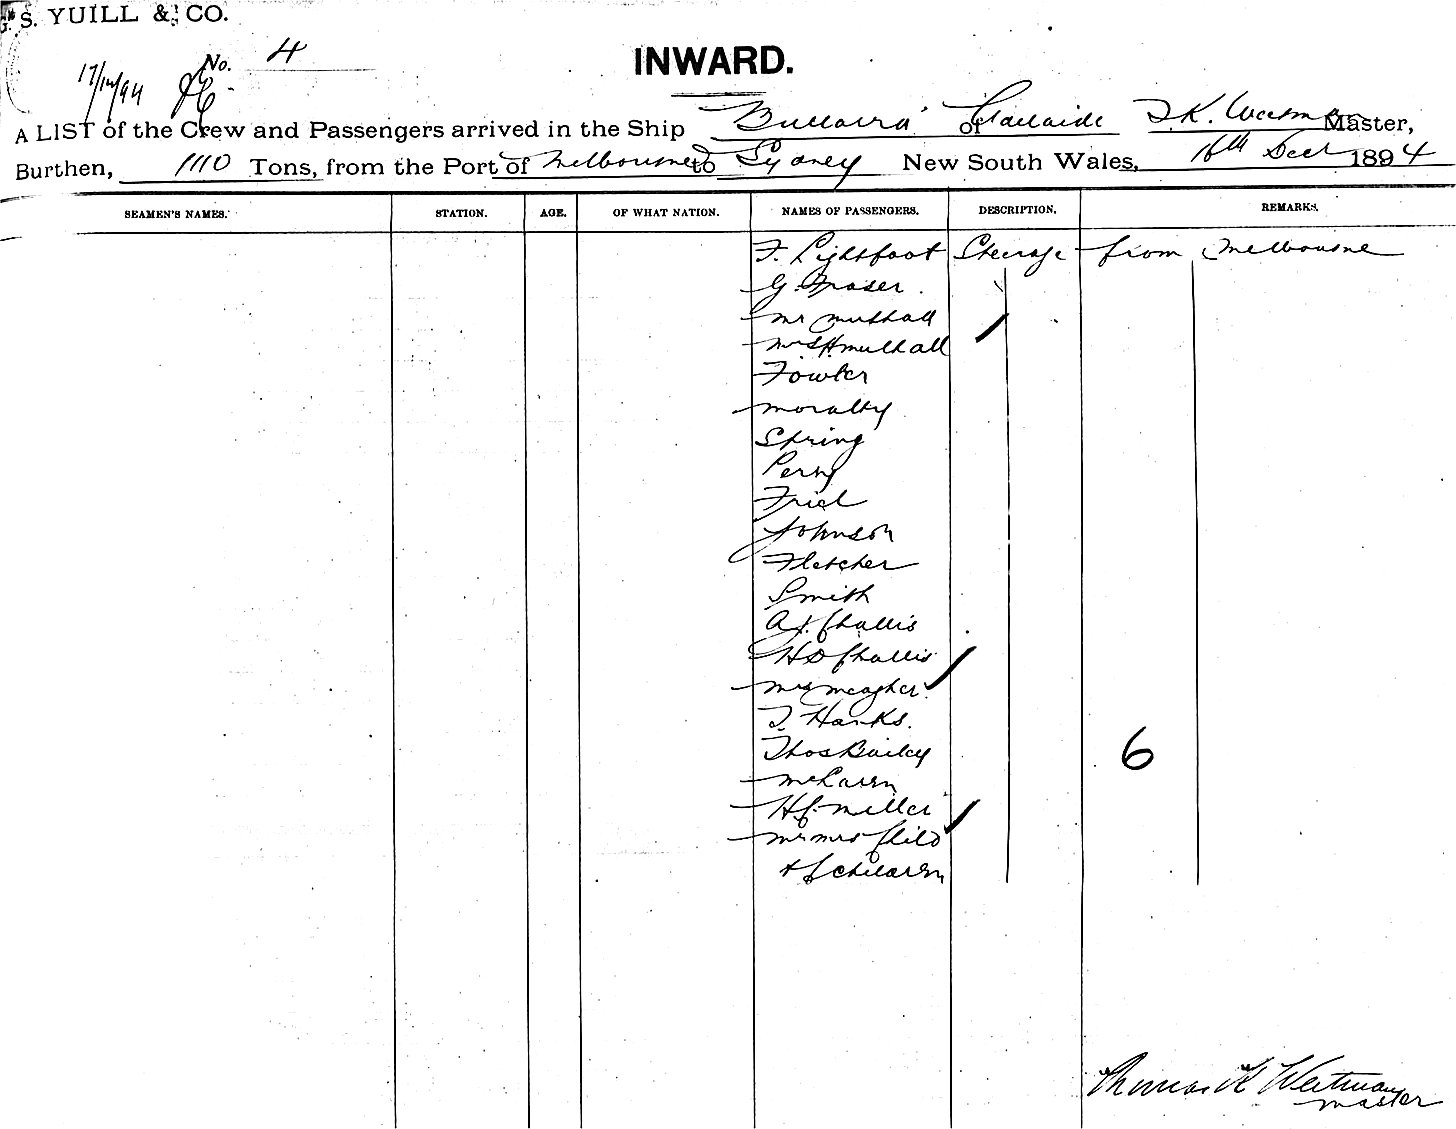 G. S. YUILL & CO.
No. 4
17/12/94
INWARD.
A LIST of the Crew and Passengers arrived in the Ship Bullarra of Adelaide T. K. Master,
Burthen, 1110 Tons, from the Port of Melbourne to Sydney New South Wales, 16th Decr 1894
SEAMEN'S NAMES. STATION. AGE. OF WHAT NATION. NAMES OF PASSENGERS. DESCRIPTION. REMARKS.
F. Lightfoot Steerage from Melbourne
G. Fraser
Mr Mulhall
Mrs H Mulhall
Fowler
Moralty
Spring
Perry
Friel
Johnson
Fletcher
Smith
A J. Challis
H D Challis
Mrs Meagher
T Hanks.
Thos Bailey
McLaren
H J. Miller
Mr Mrs Child
+ children
6
Thomas K Weitman
Master